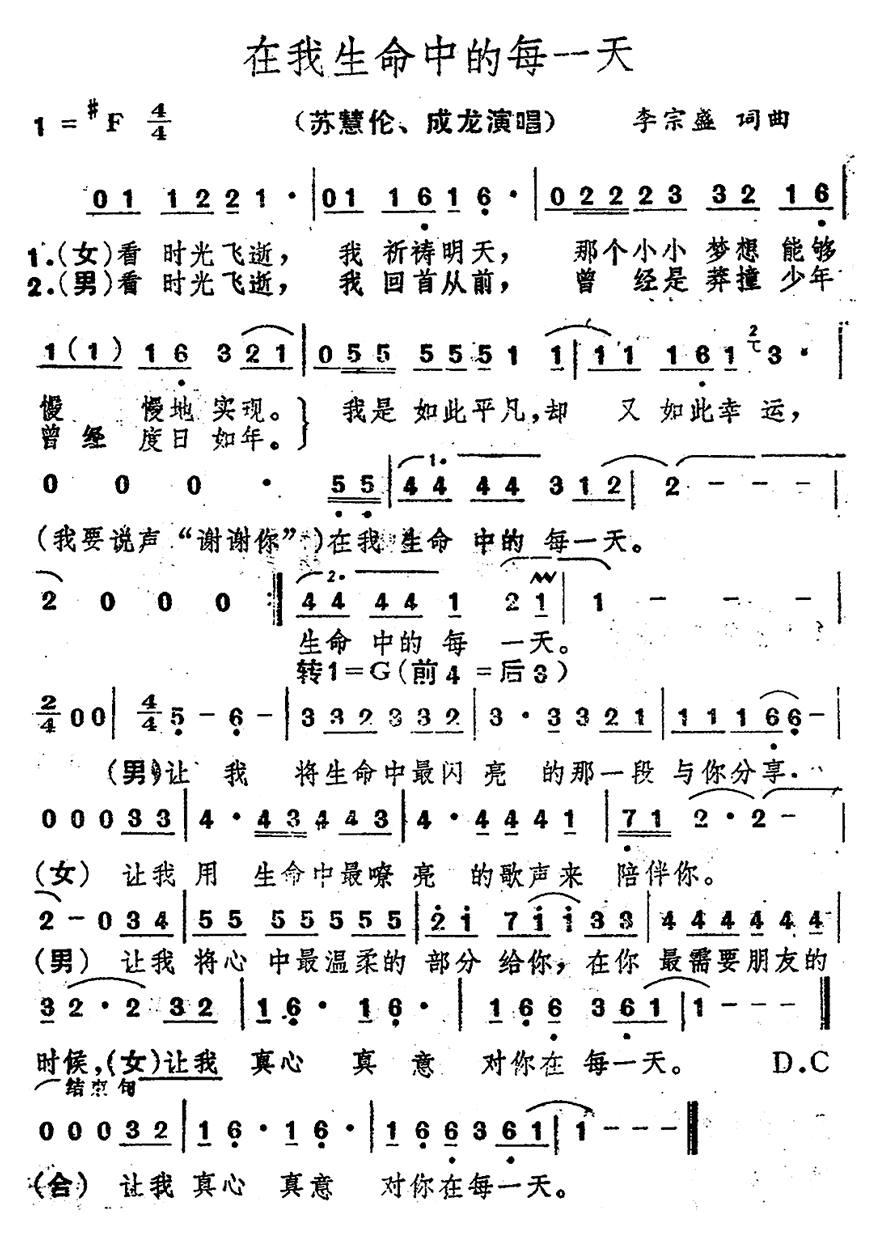 在我生命中的每一天
1 = #F 4/4 (苏慧伦、成龙演唱) 李宗盛 词曲
01 1221· | 01 1616· | 0222223 32 16 |
1.(女)看 时光飞逝， 我 祈祷明天， 那个小小 梦想 能够
2.(男)看 时光飞逝， 我 回首从前， 曾 经是 莽撞 少年
1(1) 16 321 | 055 5551 1 | 11 161 2 3· |
慢 慢地 实现。 我是 如此平凡，却 又 如此幸 运，
曾经 度日 如年。
0 0 0 · 55 | 1. 44 44 312 | 2 - - - |
(我要说声“谢谢你”)在我 生命 中的 每一天。
2 0 0 0 :| 2. 44 44 1 21 | 1 - - - |
生命 中的 每 一天。
转1=G(前4=后3)
2/4 00 | 4/4 5 - 6 - | 3 323 332 | 3· 3 321 | 111 66 - |
(男)让 我 将生命中最闪 亮 的那一段 与你分享.
000 33 | 4· 43443 | 4· 4441 | 71 2·2 - |
(女) 让我 用 生命中最嘹 亮 的歌声来 陪伴你。
2 - 0 34 | 55 55555 | 2i 7ii 33 | 444444 |
(男) 让我 将心 中最温柔的 部分 给你，在你 最需要朋友的
32·2 32 | 16· 16· | 166 361 | 1 - - - |
时候，(女)让我 真心 真 意 对你在 每一天。 D.C
结束句
000 32 | 16· 16· | 166361 | 1 - - - |
(合) 让我 真心 真意 对你在每一天。